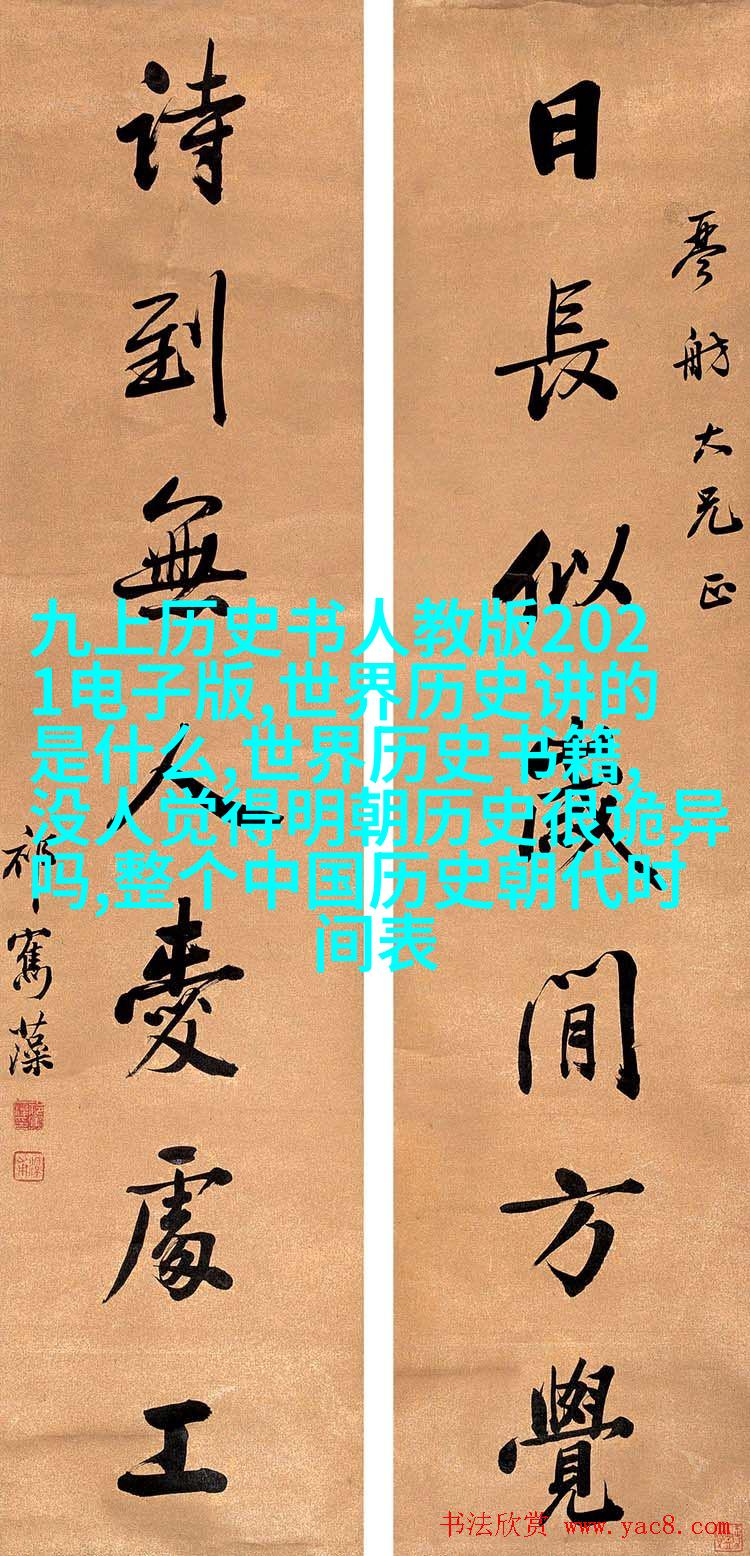 琴舫大兄正
日長似歲閒方覺
詩到無人愛處工
祁寯藻
九上历史书人教版202
1电子版,世界历史讲的
是什么,世界历史书籍,
没人觉得明朝历史很诡异
吗,整个中国历史朝代时
间表
书法欣赏 www.yac8.com